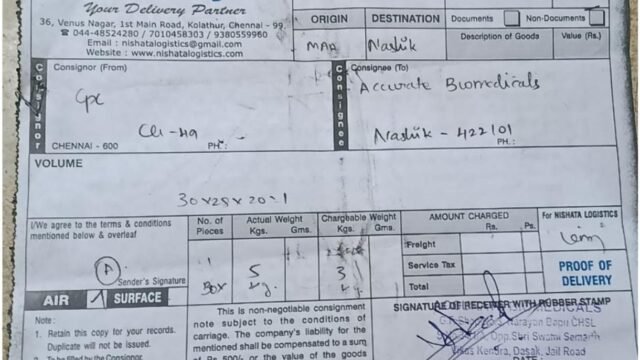 Your Delivery Partner
36, Venus Nagar, 1st Main Road, Kolathur, Chennai - 99.
☎ 044-48524280 / 7010458303 / 9380559960
Email : nishatalogistics@gmail.com
Website : www.nishatalogistics.com
ORIGIN DESTINATION Documents Non-Documents
MAA Nashik Description of Goods Value (Rs.)
Consignor
Consignor (From)
CHENNAI - 600 PH.:
Consignee
Consignee (To)
Accurate Biomedicals
Nashik - 422101
PH. :
VOLUME
30x28x20-1
I/We agree to the terms & conditions
mentioned below & overleaf
Sender's Signature
No. of Pieces Actual Weight Kgs. Gms. Chargeable Weight Kgs. Gms.
1 5 3
Box kg. kg.
AMOUNT CHARGED
Rs. Ps.
Freight
Service Tax
Total
For NISHATA LOGISTICS
PROOF OF
DELIVERY
AIR SURFACE
Note :
1. Retain this copy for your records.
Duplicate will not be issued.
2. To be filled by the Consignor
This is non-negotiable consignment
note subject to the conditions of
carriage. The company's liability for the
mentioned shall be compensated to a sum
of Rs 50% or the value of the goods
SIGNATURE OF RECEIVER WITH RUBBER STAMP
Narayan Bapu CHSL
Opp. Shri Swami Samarth
Kendra, Dasak, Jail Road
DATE